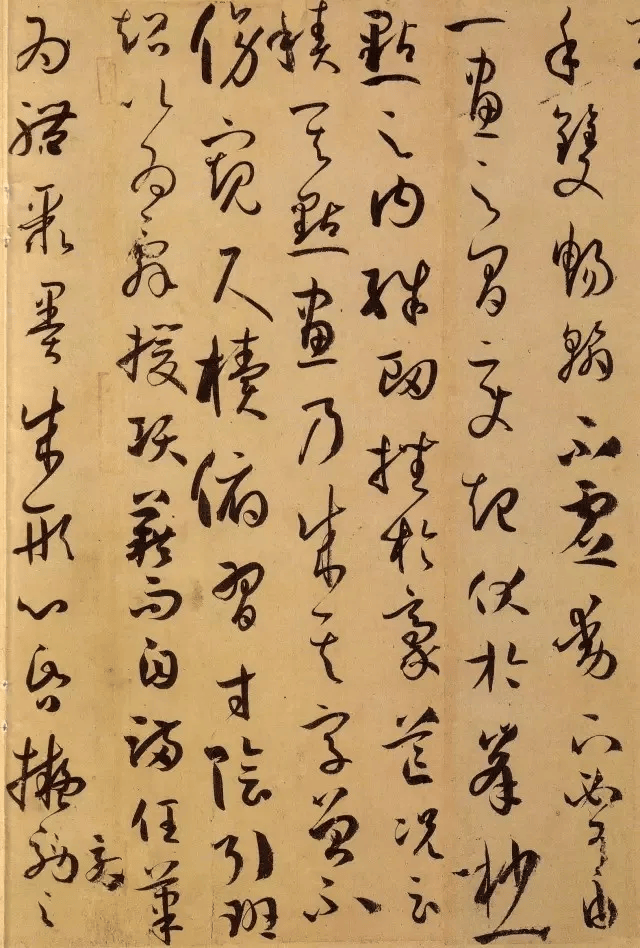 手雙暢翰不虛動下必有由
一畫之間變起伏於峯杪一
點之內殊衄挫於豪芒況云
積其點畫乃成其字曾不
傍窺尺牘俯習寸陰引班
超以為辭援項籍而自滿任筆
為體聚墨成形心昏擬效之